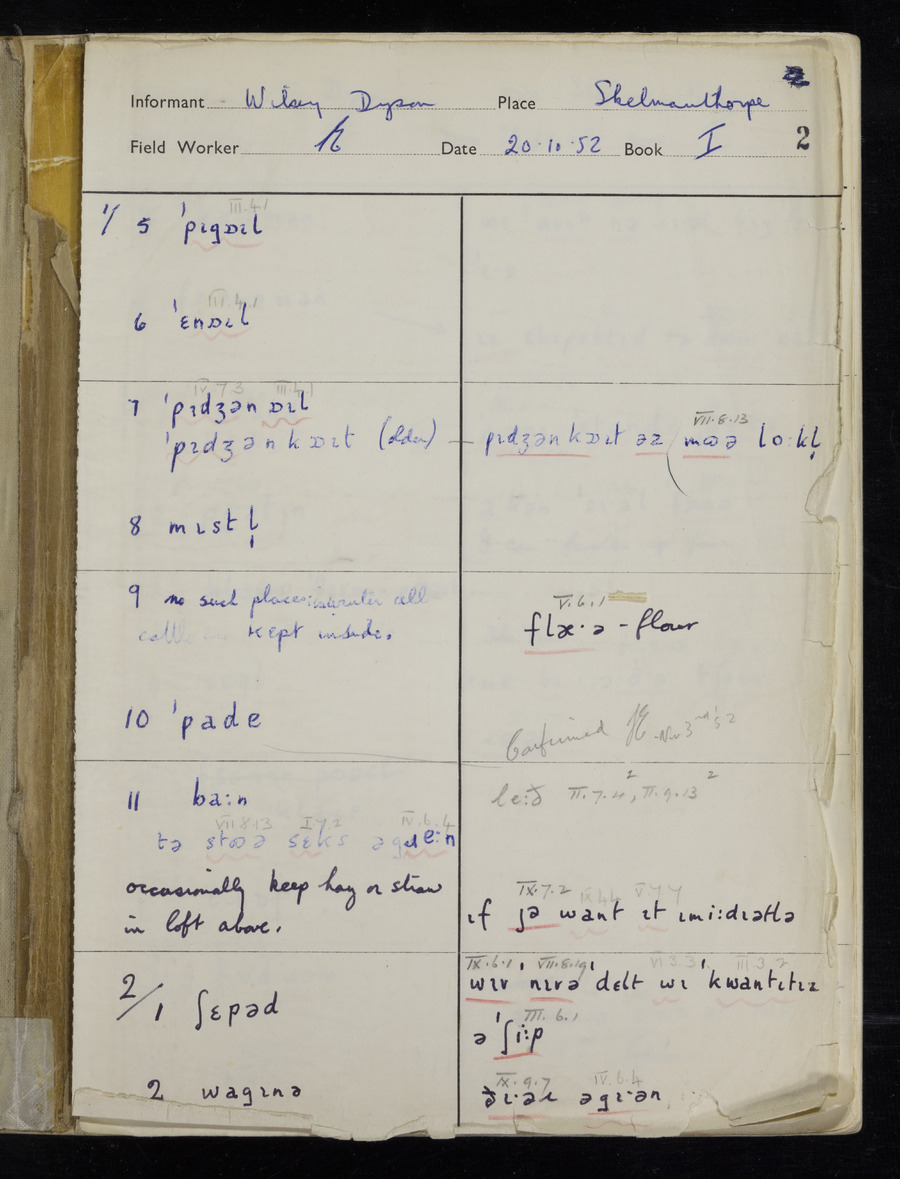 Informant Wilsey Dyson Place Skelmanthorpe
Field Worker Date 20·10·52 Book I 2
III.4.1
1/ 5 ˈpɪgɒɪl
III.4.1
6 ˈɛnɒɪl
IV.7.3 III.4.1
7 ˈpɪdʒən ɒɪl
ˈpɪdʒən kɒɪt (older)
8 mɪstl̩
9 no such place: in winter all
cattle kept inside.
10 ˈpade
11 ba:n
VII.8.13 I.7.2 IV.6.4
tə stɷə sɛks
occasionally keep hay or straw
in loft above.
2/1 ʃɛpəd
2 wagɪnə
VII.8.13
pɪdʒən kɒɪt əz mɷə lo:kl̩
V.6.1
flæ·ə - flour
Confirmed Nov 3rd '52
le:ð II.7.4², II.9.13²
IX.7.2 V.7.7
ɪf jə want ɪt ɪmi:dɪətlə
IX.6.1 VII.8.19 VI.3.3 III.3.2
wɪv nɪvə ˈdɛlt wɪ ˈkwantɪtɪz
III.6.1
ə ˈʃi:p
IX.9.7 IV.6.4
əgɪ·ən